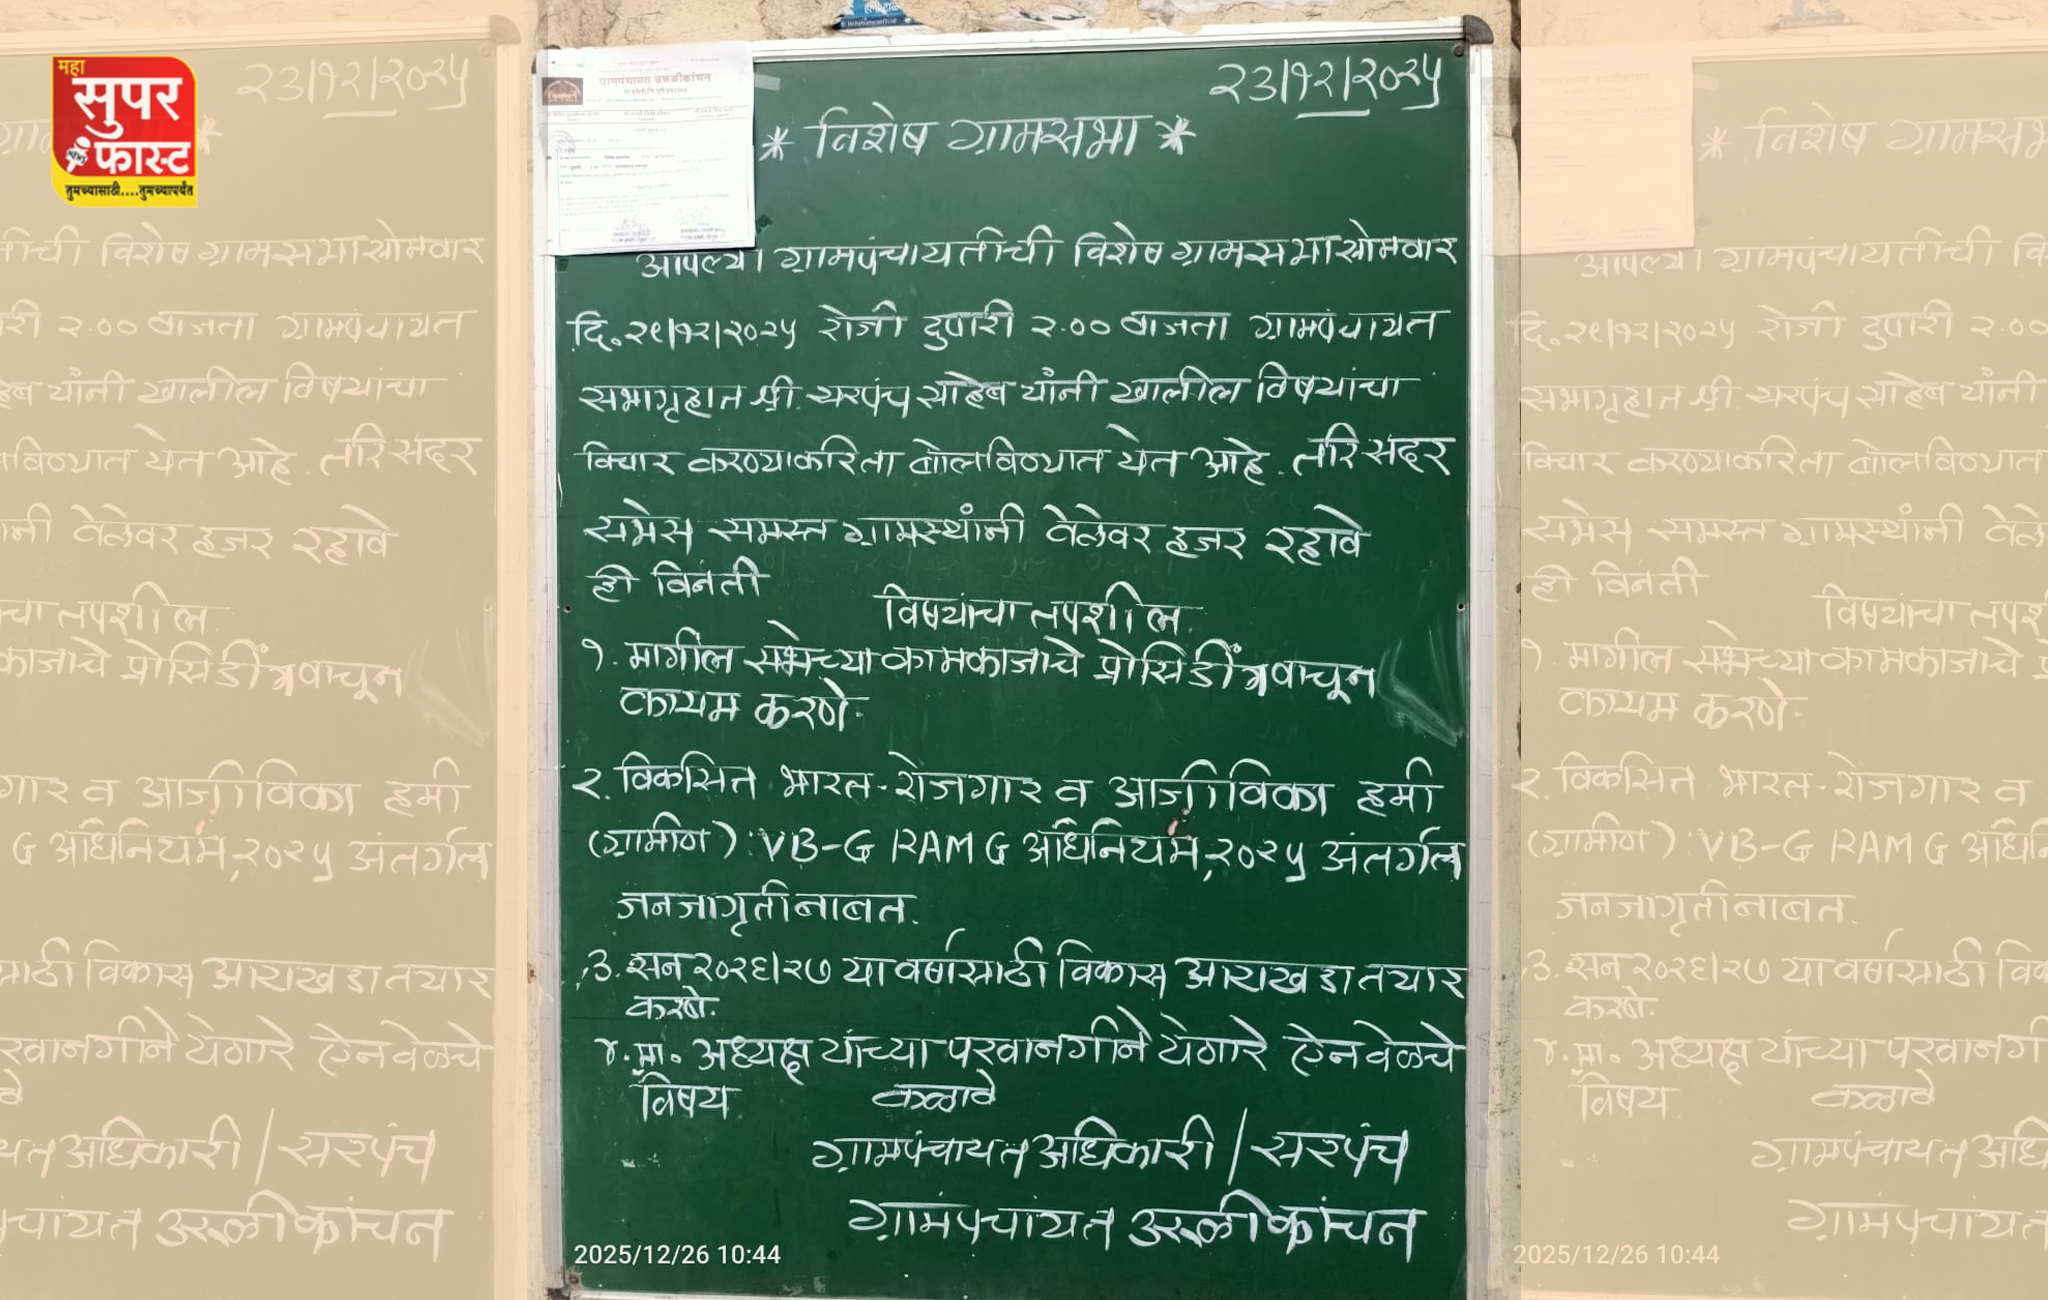 महा
सुपर
फास्ट
तुमच्यासाठी....तुमच्यापर्यंत
ग्रामपंचायत उरुळीकांचन
२३/१२/२०२५
* विशेष ग्रामसभा *
आपल्या ग्रामपंचायतीची विशेष ग्रामसभा सोमवार
दि.२९/१२/२०२५ रोजी दुपारी २.०० वाजता ग्रामपंचायत
सभागृहात श्री. सरपंच साहेब यांनी खालील विषयांचा
विचार करण्याकरिता बोलविण्यात येत आहे. तरि सदर
सभेस समस्त ग्रामस्थांनी वेळेवर हजर रहावे
ही विनंती
विषयांचा तपशील.
१. मागील सभेच्या कामकाजाचे प्रोसिडींग वाचून
कायम करणे.
२. विकसित भारत-रोजगार व आजीविका हमी
(ग्रामीण): VB-G RAM G अधिनियम,२०२५ अंतर्गत
जनजागृतीबाबत.
३. सन २०२६/२७ या वर्षासाठी विकास आराखडा तयार
करणे.
४. मा. अध्यक्ष यांच्या परवानगीने येणारे ऐनवेळचे
विषय
कळावे
ग्रामपंचायत अधिकारी / सरपंच
ग्रामंपचायत उरूळीकांचन
2025/12/26 10:44